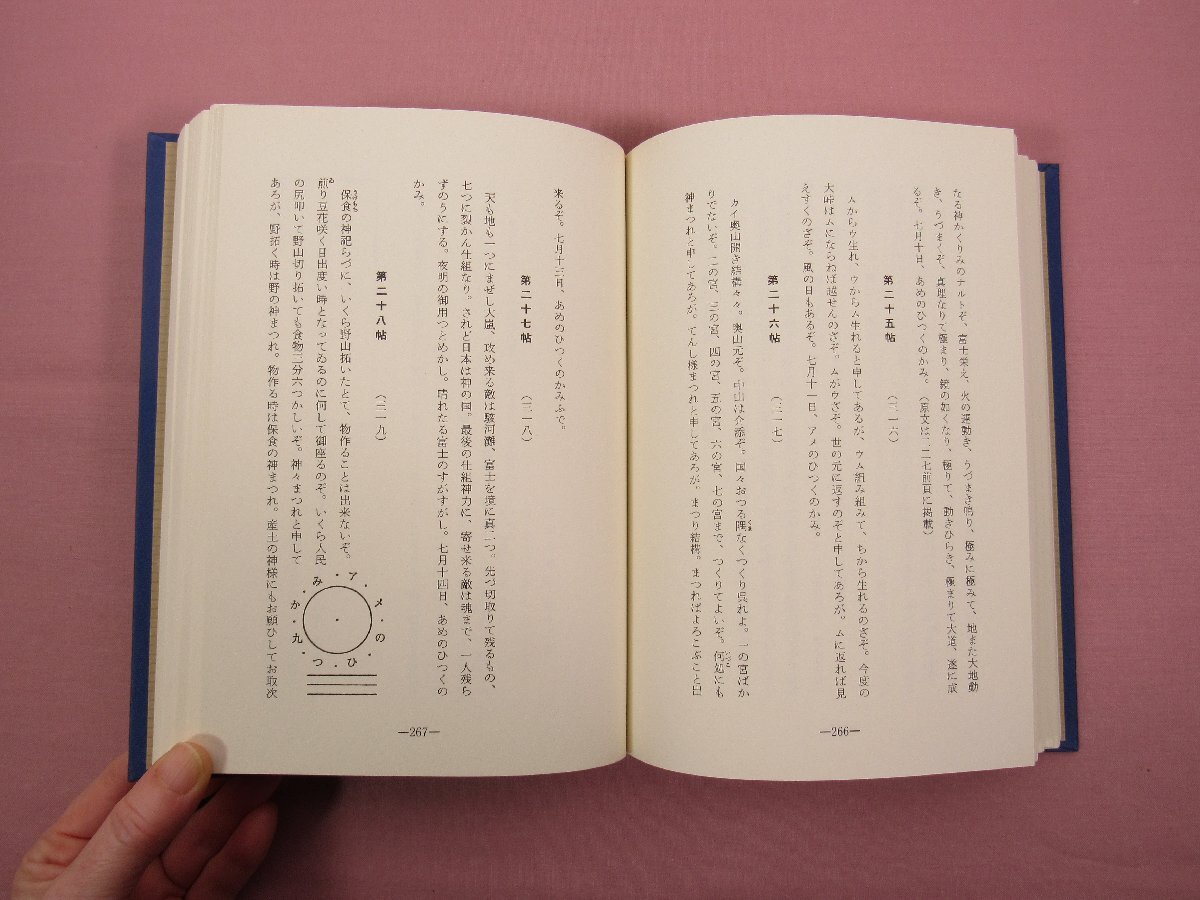 なる神かくりみのナルトぞ、富士栄え、火の運動き、うづまき鳴り、極みに極みて、地また大地動
き、うづまくぞ、真理なりて極まり、鏡の如くなり、極りて、動きひらき、極まりて大道、遂に成
るぞ。七月十日、あめのひつくのかみ。(原文は二二七前頁に掲載)
第二十五帖 (三一六)
ムからウ生れ、ウからム生れると申してあるが、ウム組み組みて、ちから生れるのざぞ。今度の
大峠はムにならねば越せんのざぞ。ムがウざぞ。世の元に返すのぞと申してあろが。ムに返れば見
えすくのざぞ。風の日もあるぞ。七月十一日、アメのひつくのかみ。
第二十六帖 (三一七)
カイ奥山開き結構々々。奥山元ぞ。中山は介添ぞ。国々おつる隅なくつくり呉れよ。一の宮ばか
くま
りでないぞ。二の宮、三の宮、四の宮、五の宮、六の宮、七の宮まで、つくりてよいぞ。何処にも
神まつれと申してあろが。てんし様まつれと申してあろが。まつり結構。まつればよろこぶこと出
—266—
来るぞ。七月十三日、あめのひつくのかみふで。
第二十七帖 (三一八)
天も地も一つにまぜし大嵐、攻め来る敵は駿河灘、富士を境に真二つ。先づ切取りて残るもの、
七つに裂かん仕組なり。されど日本は神の国。最後の仕組神力に、寄せ来る敵は魂まで、一人残ら
ずのうにする。夜明の御用つとめかし。晴れたる富士のすがすがし。七月十四日、あめのひつくの
かみ。
第二十八帖 (三一九)
保食の神祀らづに、いくら野山拓いたとて、物作ることは出来ないぞ。
煎り豆花咲く目出度い時となってゐるのに何して御座るのぞ。いくら人民
の尻叩いて野山切り拓いても食物三分六つかしいぞ。神々まつれと申して
あろが、野拓く時は野の神まつれ。物作る時は保食の神まつれ。産土の神様にもお願ひしてお取次
ア・メ・の・ひ・つ・九・か・み・
—267—